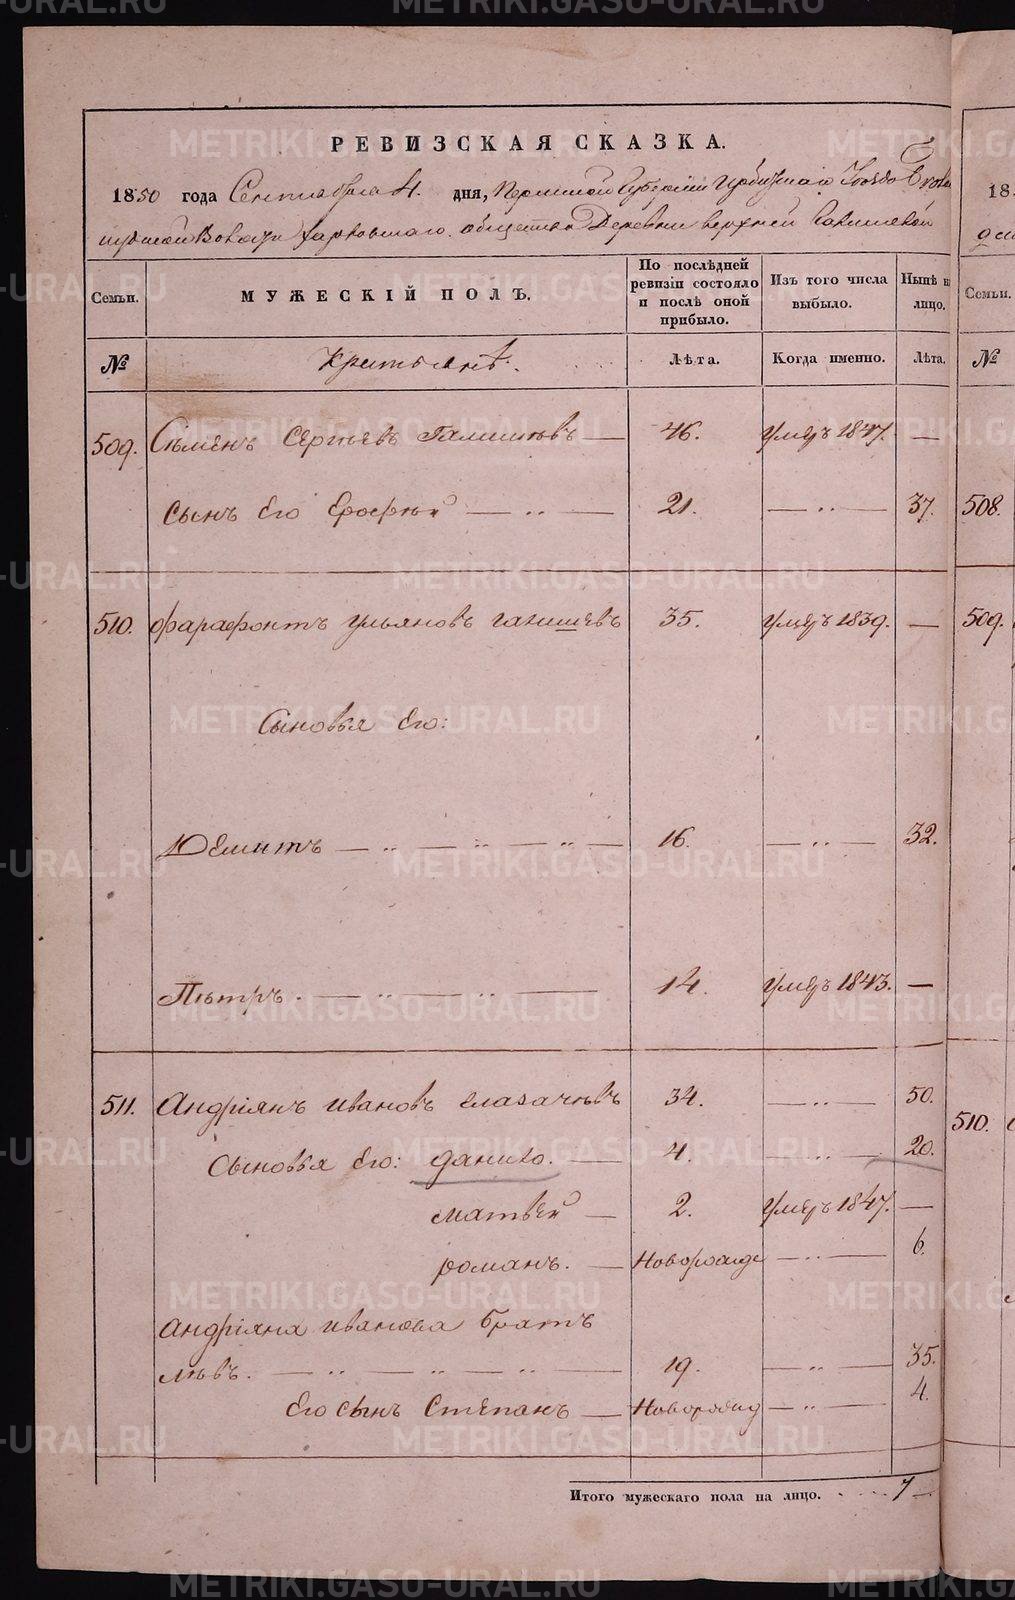 РЕВИЗСКАЯ СКАЗКА.
1850 года Сентября 4. дня, Пермской Губернии Ирбитскаго уезда
волости Харловскаго общества Деревни верхней
Семьи.
МУЖЕСКІЙ ПОЛЪ.
По послѣдней ревизіи состояло и послѣ оной прибыло.
Изъ того числа выбыло.
Нынѣ на лицо.
Семьи.
№
Крестьянѣ.
Лѣта.
Когда именно.
Лѣта.
№
509. Сѣменъ Сергѣевъ — 46. умеръ 1847. —
сынъ его Ерофѣй — 21. — 37. 508.
510. Фарафонтъ Ульяновъ ганшевъ 35. умеръ 1839. — 509.
Сыновья его:
Дементъ — 16. — 32.
Пѣтръ. — 14. умеръ 1843. —
511. Андріянъ ивановъ глазачѣвъ 34. — 50.
510.
Сыновья его: данило. — 4. — 20.
матвей — 2. умеръ 1847. —
романъ. — Новорожде — 6.
Андріяна иванова братъ
лѣвъ. — 19. — 35.
Его сынъ Степанъ — Новорожд — 4.
Итого мужескаго пола на лицо. 7
METRIKI.GASO-URAL.RU